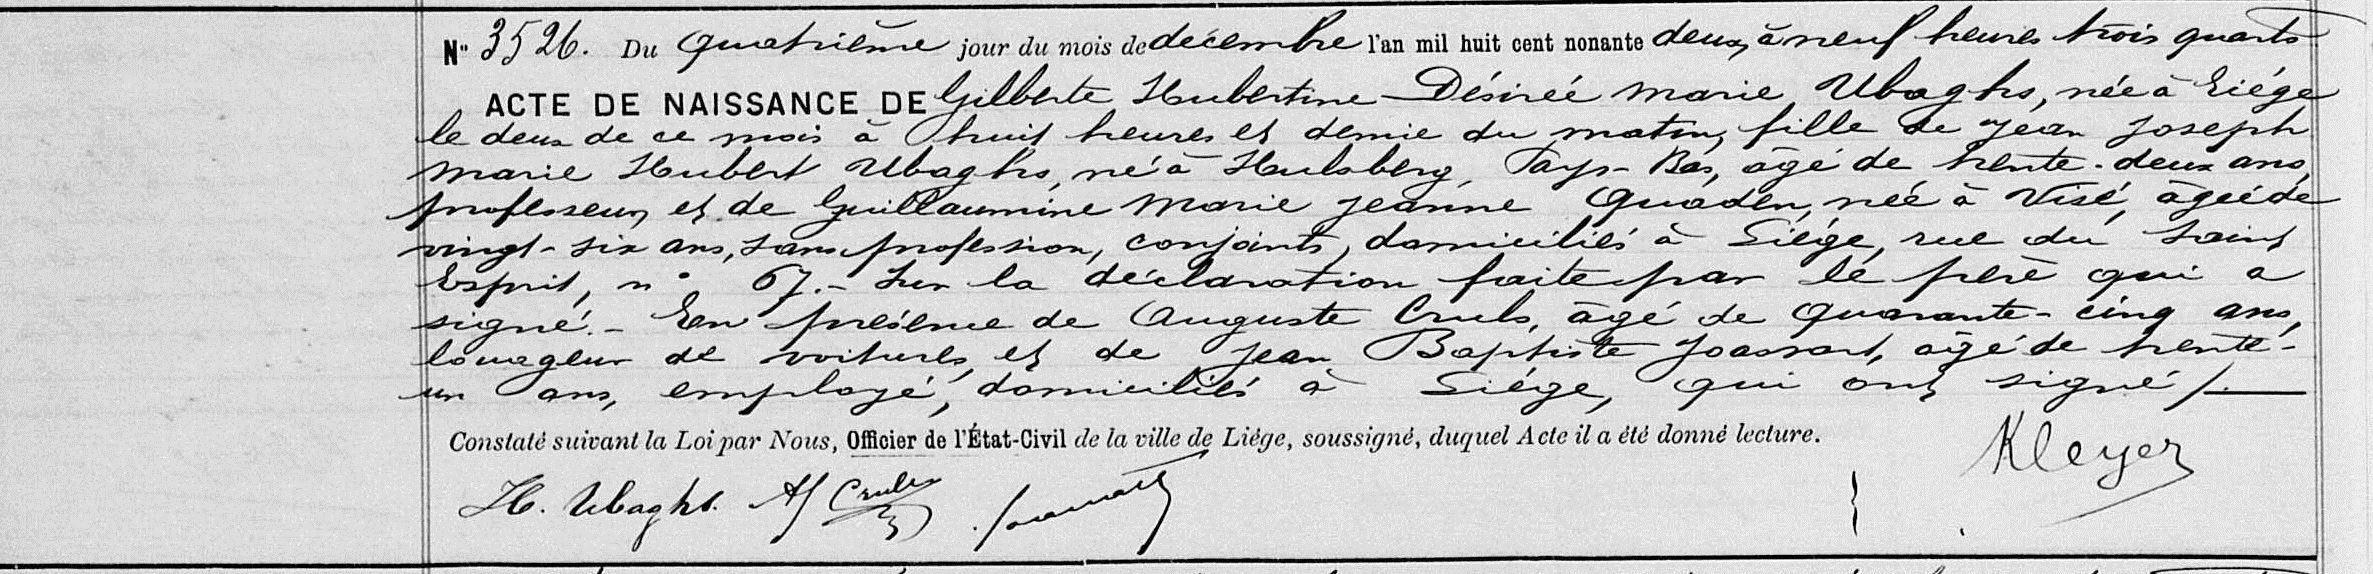 N° 3526. Du quatrième jour du mois de décembre l'an mil huit cent nonante deux, à neuf heures trois quarts
ACTE DE NAISSANCE DE Gilberte Hubertine Désirée Marie Ubaghs, née à Liége
le deux de ce mois à huit heures et demie du matin, fille de Jean Joseph
Marie Hubert Ubaghs, né à Hulsberg, Pays-Bas, âgé de trente-deux ans,
professeur, et de Guillaumine Marie Jeanne Quaden, née à Visé, âgée de
vingt-six ans, sans profession, conjoints, domiciliés à Liége, rue du Saint
Esprit, n° 67. - Sur la déclaration faite par le père qui a
signé. - En présence de Auguste Cruls, âgé de quarante-cinq ans,
louageur de voitures, et de Jean Baptiste Joassart, âgé de trente-
un ans, employé, domiciliés à Liége, qui ont signé /.
Constaté suivant la Loi par Nous, Officier de l'État-Civil de la ville de Liége, soussigné, duquel Acte il a été donné lecture.
Kleyer
H. Ubaghs. A Cruls